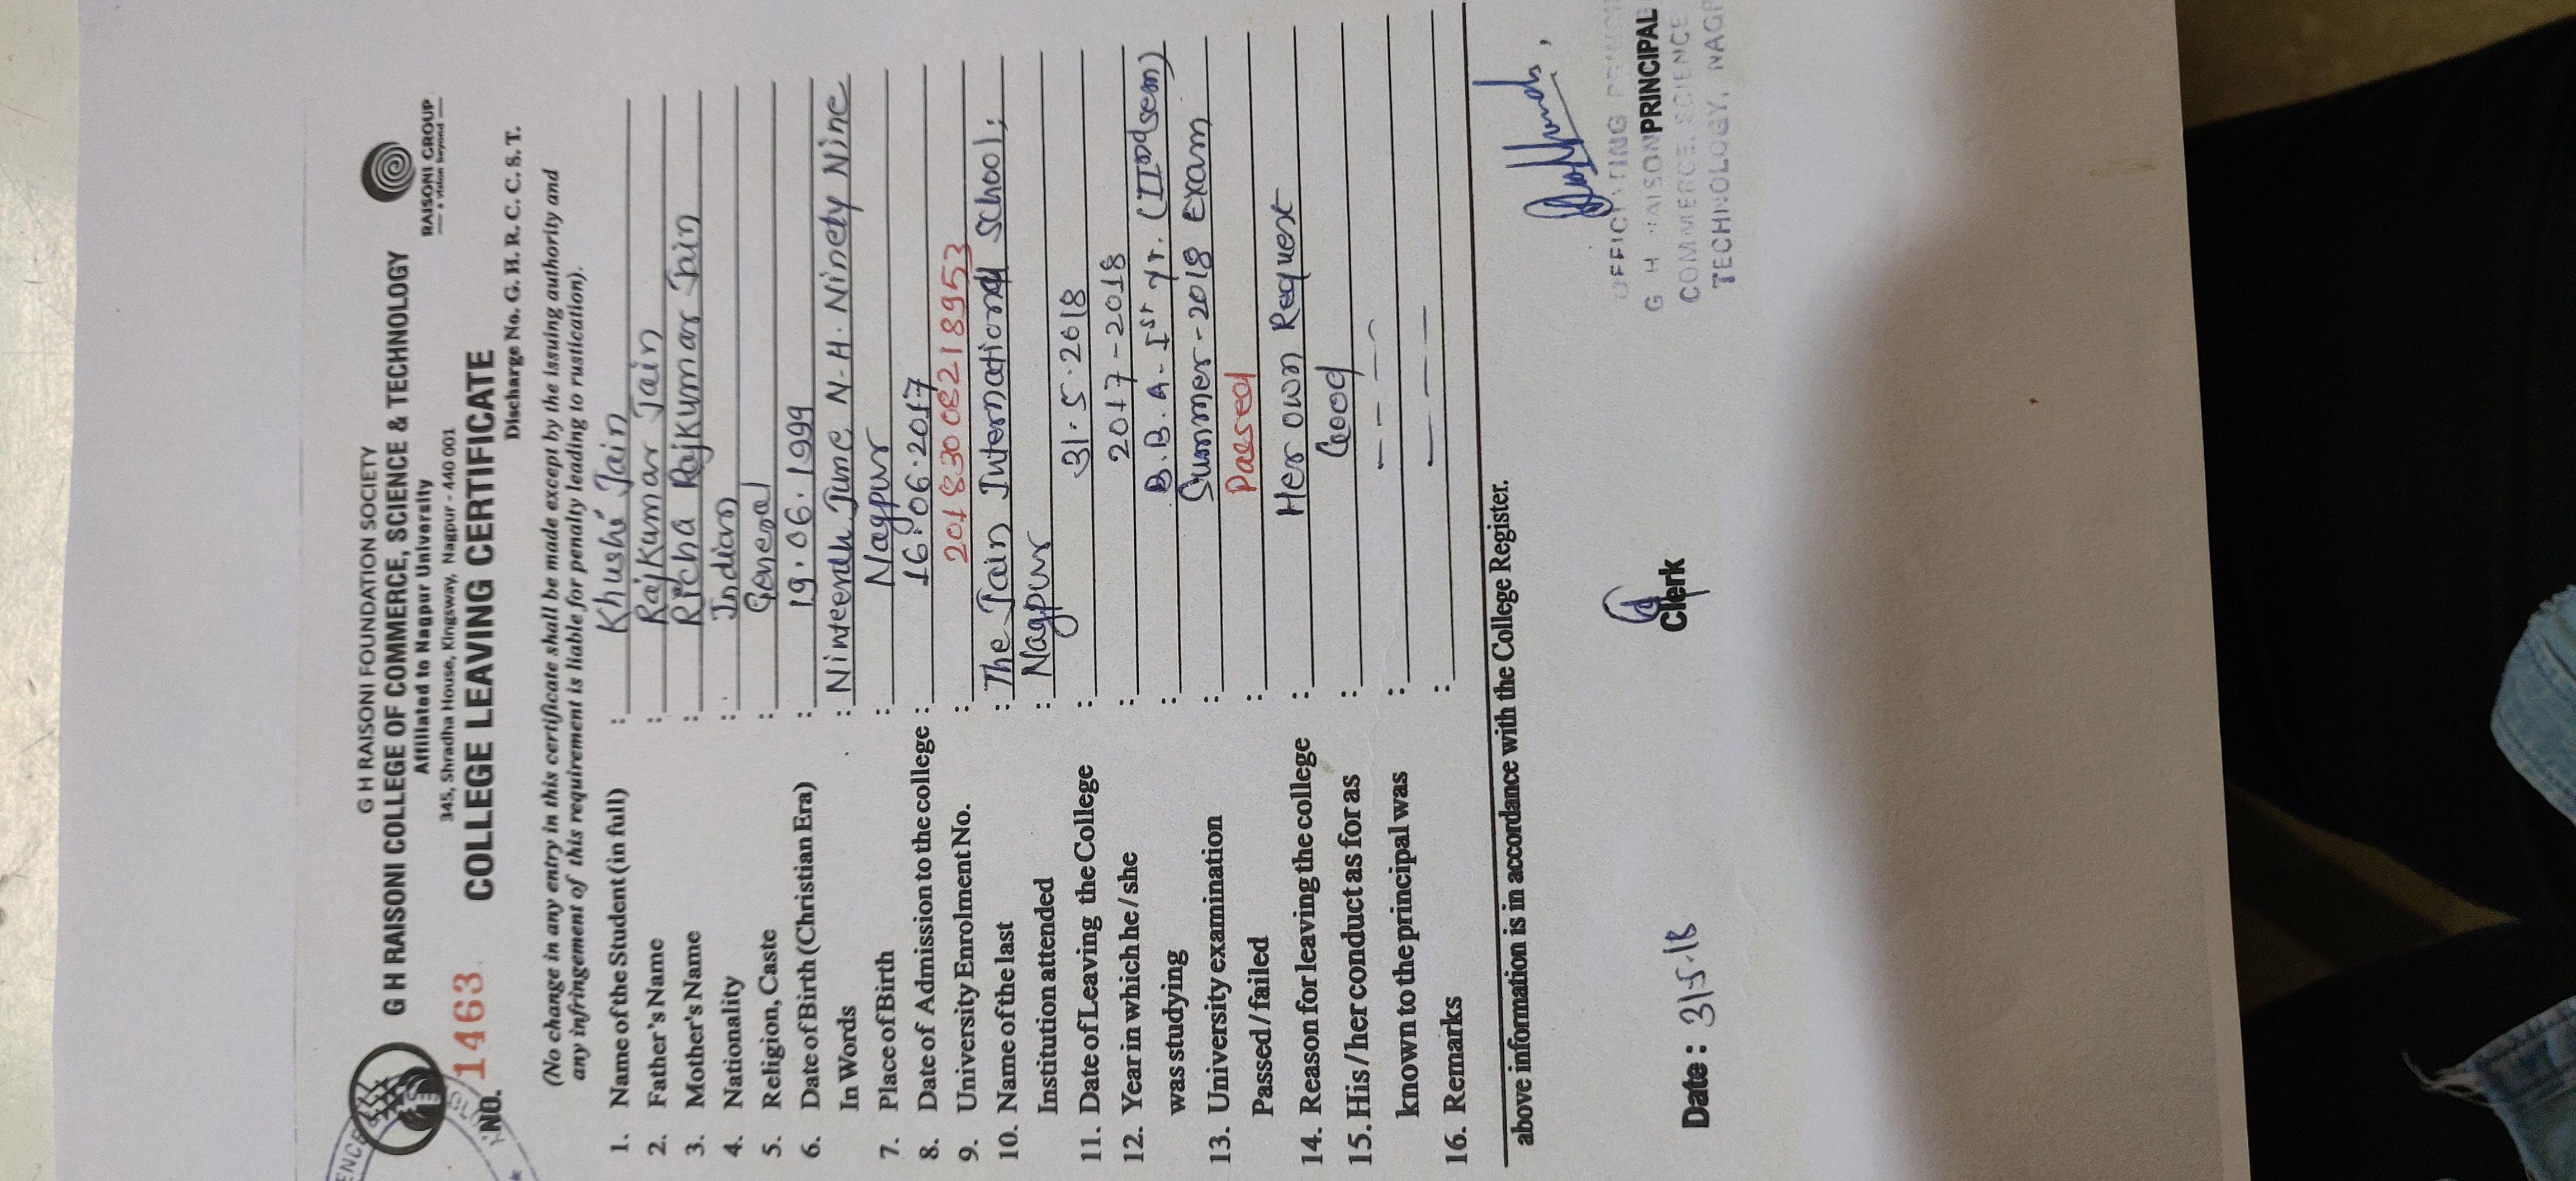 G H RAISONI FOUNDATION SOCIETY
G H RAISONI COLLEGE OF COMMERCE, SCIENCE & TECHNOLOGY
Affiliated to Nagpur University
345, Shradha House, Kingsway, Nagpur - 440 001
RAISONI GROUP
a vision beyond
NO. 1463
COLLEGE LEAVING CERTIFICATE
Discharge No. G. H. R. C. C. S. T.
(No change in any entry in this certificate shall be made except by the issuing authority and
any infringement of this requirement is liable for penalty leading to rustication).
1. Name of the Student (in full) : Khushi Jain
2. Father's Name : Rajkumar Jain
3. Mother's Name : Richa Rajkumar Jain
4. Nationality : Indian
5. Religion, Caste : General
6. Date of Birth (Christian Era) : 19.06.1999
In Words : Ninteenth June N.H. Ninety Nine
7. Place of Birth : Nagpur
8. Date of Admission to the college : 16.06.2017
9. University Enrolment No. : 20183008218953
10. Name of the last : The Jain International School;
Institution attended : Nagpur
11. Date of Leaving the College : 31.5.2018
12. Year in which he / she : 2017-2018
was studying : B.B.A-Ist yr. (IInd sem)
13. University examination : Summer-2018 Exam
Passed / failed : Passed
14. Reason for leaving the college : Her own Request
15. His / her conduct as for as : Good
known to the principal was :
16. Remarks :
above information is in accordance with the College Register.
Date : 31.5.18
Clerk
OFFICIATING
G H RAISONI
PRINCIPAL
COMMERCE, SCIENCE
TECHNOLOGY, NAGP